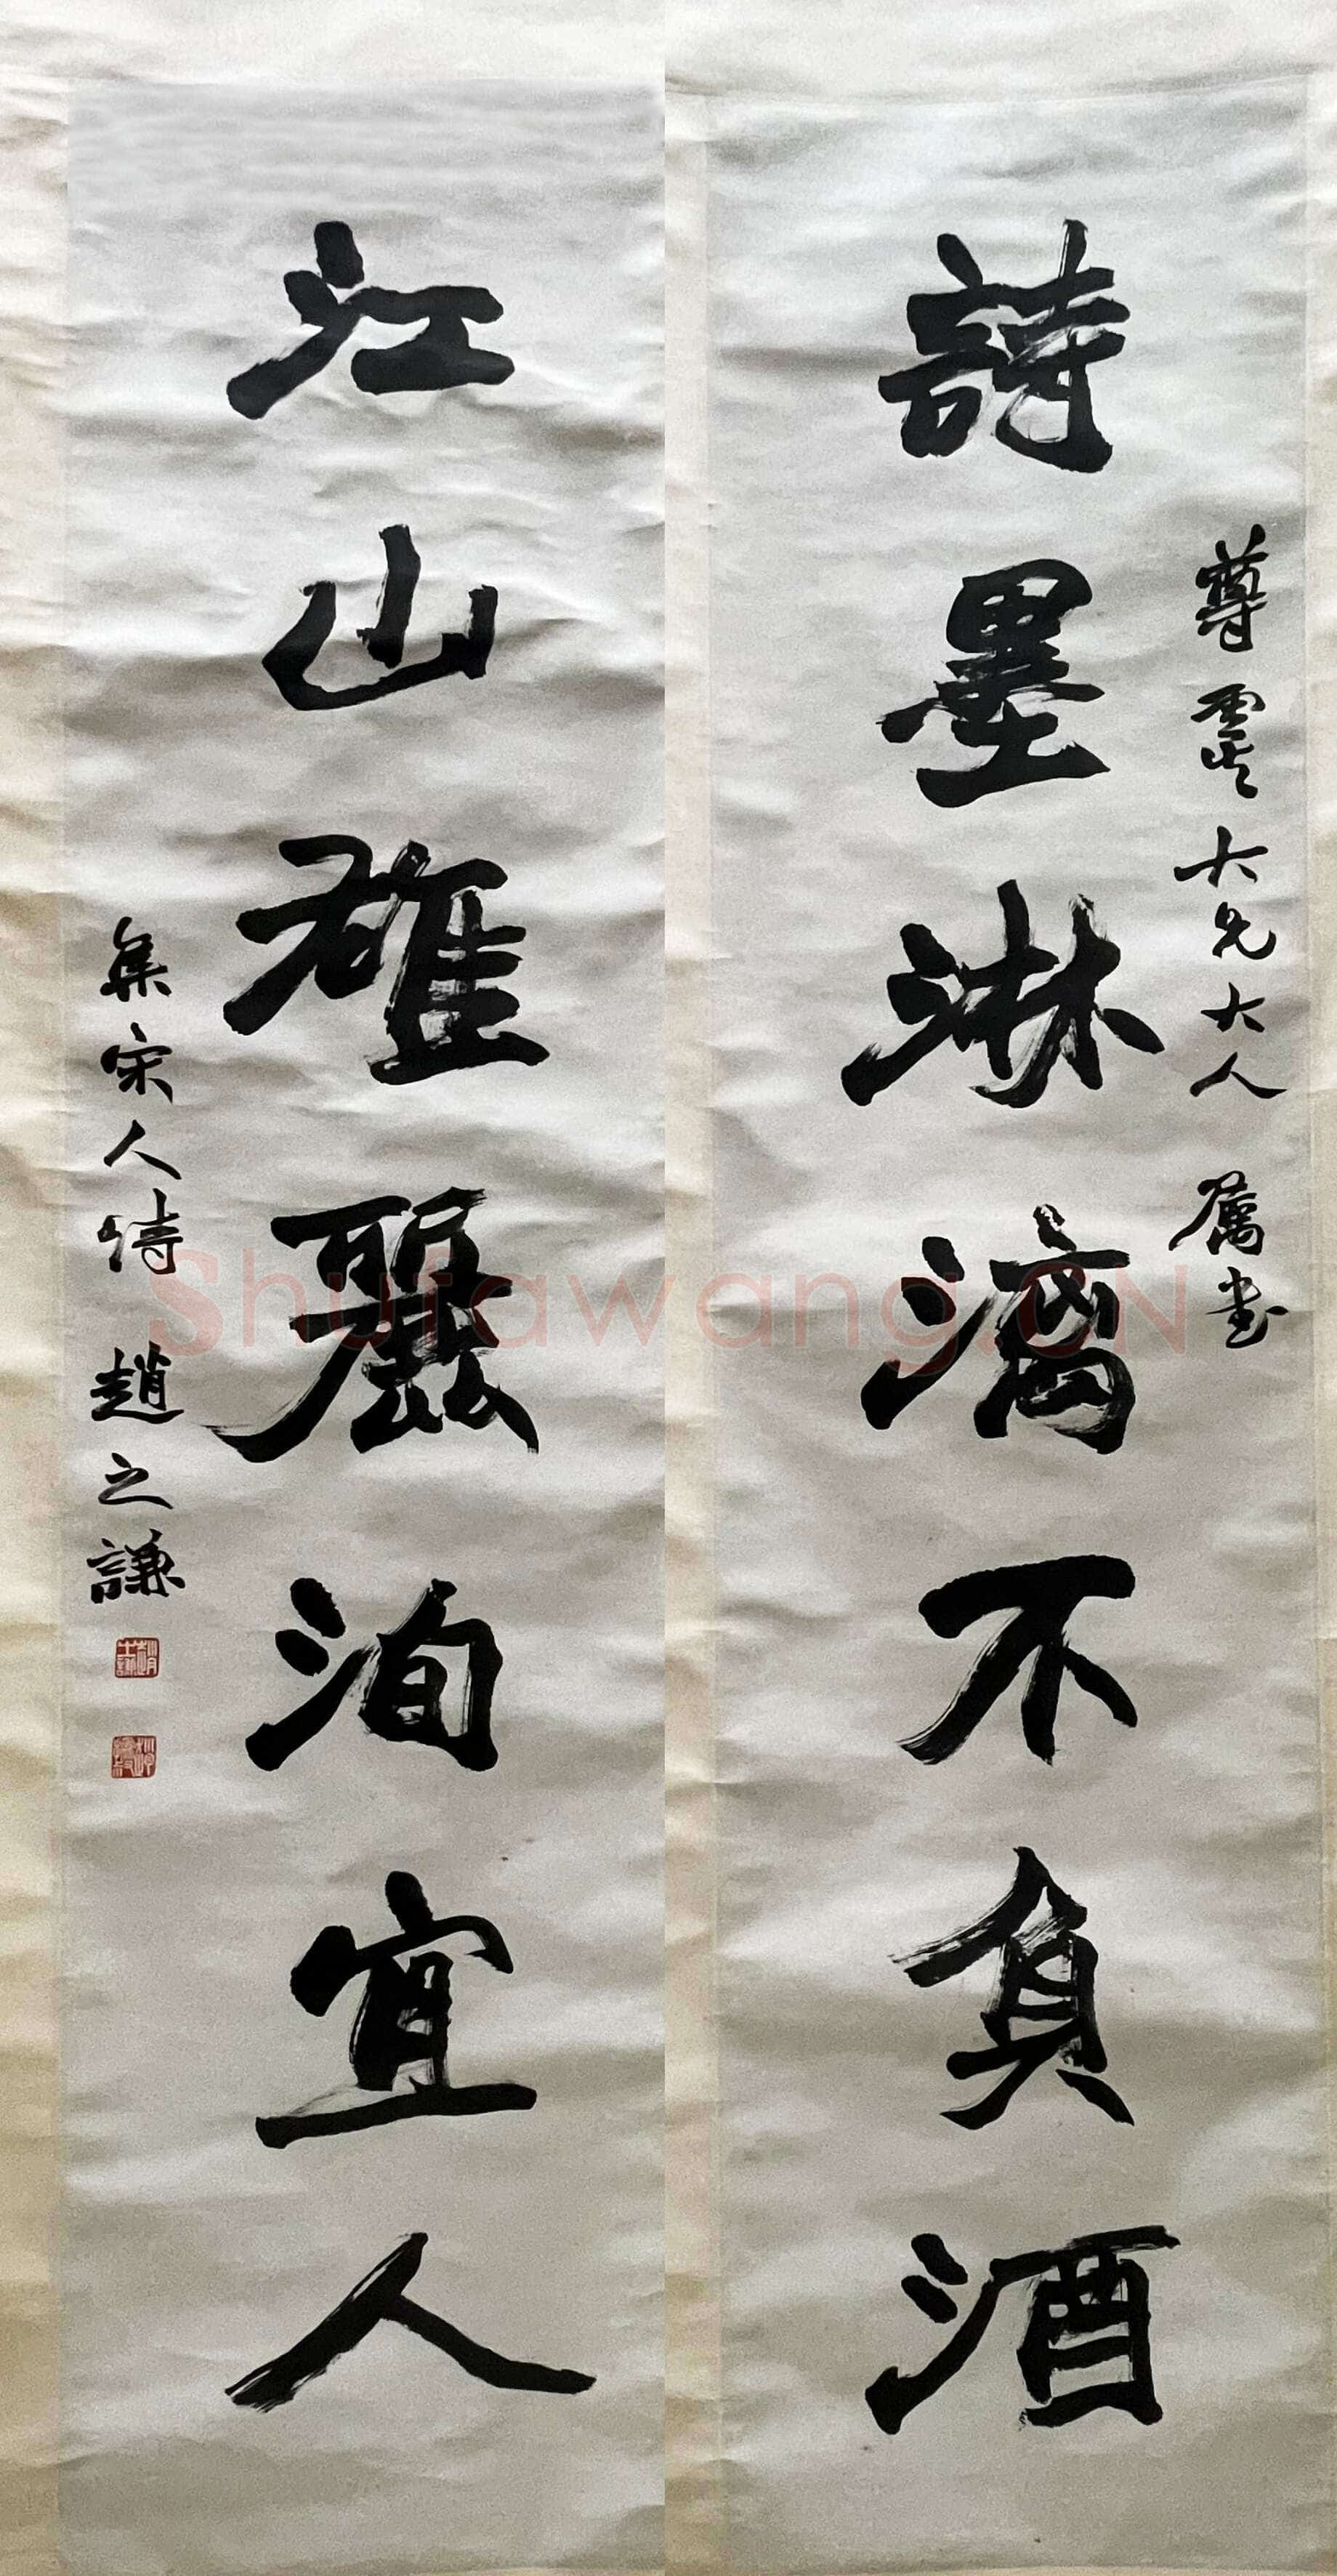 尊虚大兄大人属书
詩墨淋漓不負酒
江山雄麗洵宜人
集宋人诗 趙之謙
Shufawang.CN